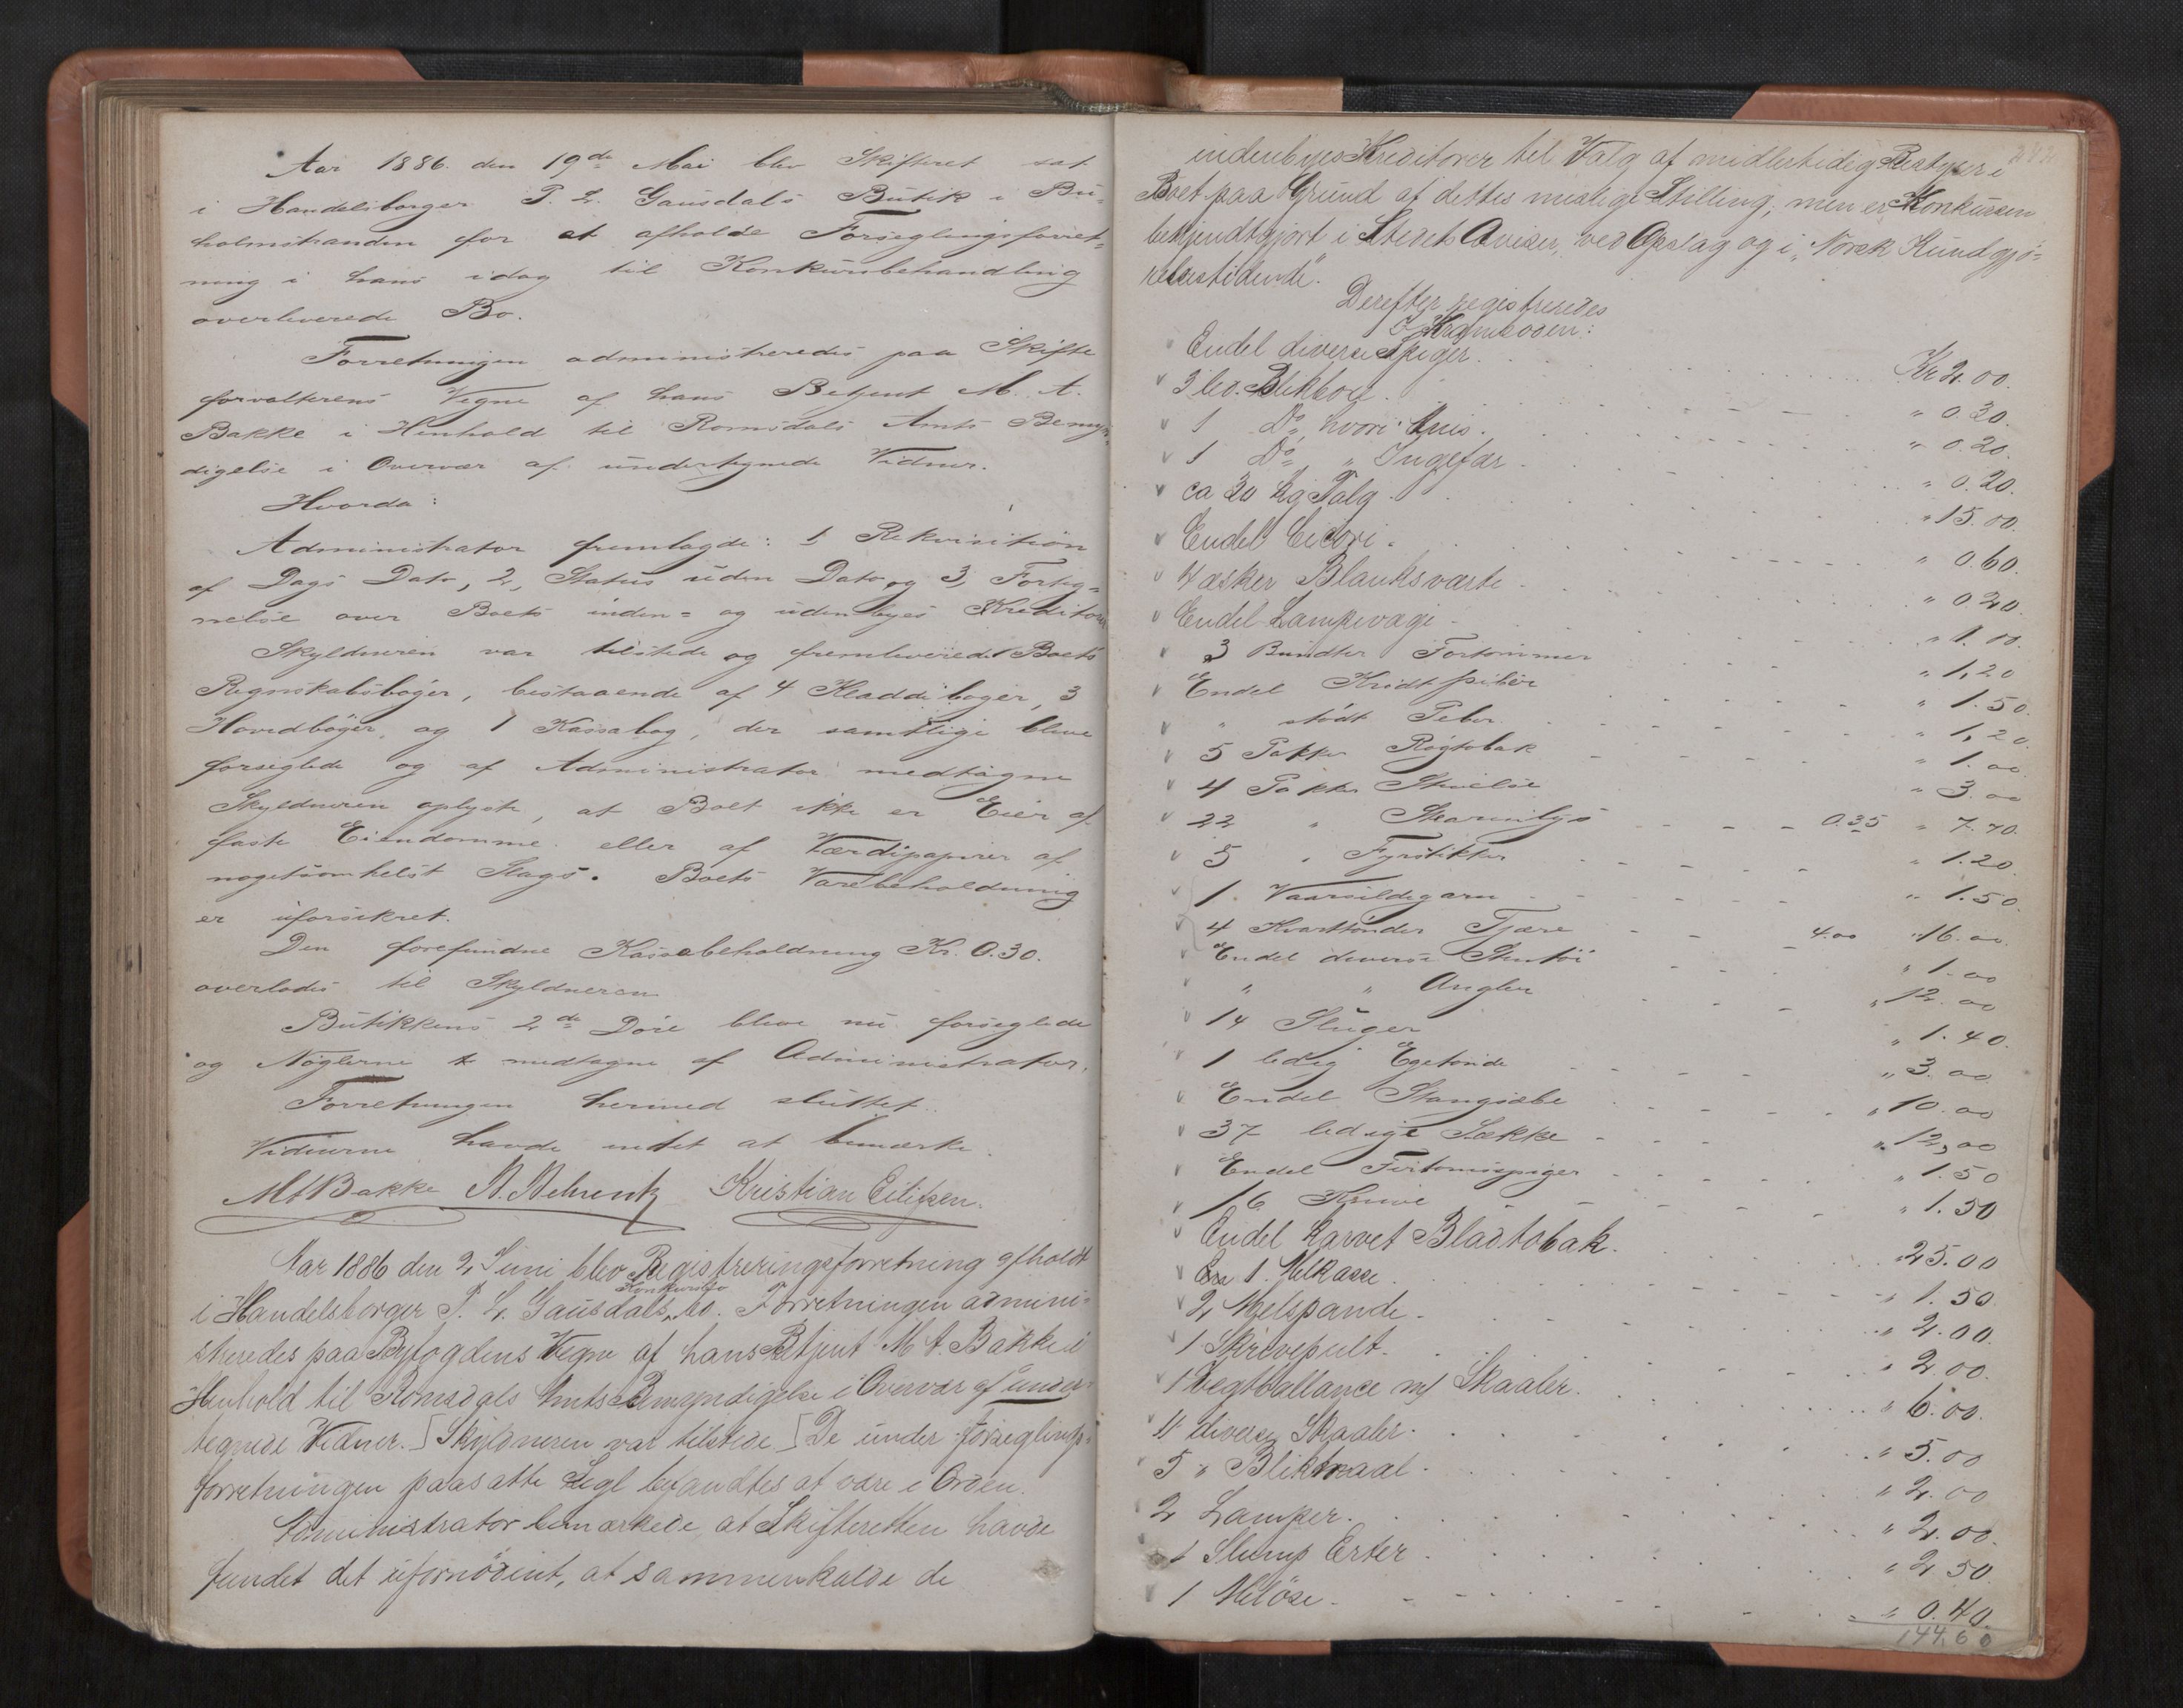 Aar 1886 den 19de Mai blev Skifteret sat
i Handelsborger P. L. Gausdals Butik i Bu-
holmstranden for at afholde Forseglingsforret-
ning i hans idag til Konkursbehandling
overleverede Bo.
Forretningen administreredes paa Skifte
forvalterens Vegne af hans Betjent M. A.
Bakke i Henhold til Romsdals Amts Bemyn-
digelse i Overvær af undertegnede Vidner.
Hvorda:
Administrator fremlagde: 1 Rekvisition
af Dags Dato, 2, Status uden Dato og 3, Forteg-
nelse over Boets inden- og udenbyes Kreditorer
Skyldneren var tilstede og fremleverede Boets
Regnskabsbøger, bestaaende af 4 Kladdebøger, 3
Hovedbøger, og 1 Kassabog, der samtlige bleve
forseglede og af Administrator medtagne
Skyldneren oplyste, at Boet ikke er Eier af
faste Eiendomme eller af Værdipapirer af
nogetsomhelst Slags. Boets Varebeholdning
er uforsikret.
Den forefundne Kassabeholdning Kr. 0.30.
overlodes til Skyldneren
Butikkens 2de Døre bleve nu forseglede
og Nøglerne medtagne af Administrator.
Forretningen hermed sluttet.
Vidnerne havde intet at bemærke.
M A Bakke N. Nehrentz Kristian Eilifsen.
Aar 1886 den 2, Juni blev Registreringsforretning afholdt
Konkursbo
i Handelsborger P. L. Gausdals bo. Forretningen admini-
streredes paa Byfogdens Vegne af hans Betjent M A. Bakke i
Henhold til Romsdals Amts Bemyndigelse i Overvær af under-
tegnede Vidner. [Skyldneren var tilstede.] De under forseglings-
forretningen paasatte Segl befandtes at være i Orden.
Administrator bemærkede, at Skifteretten havde
fundet det ufornødent, at sammenkalde de
indenbyes Kreditorer til Valg af midlertidig Bestyrer i
Boet paa Grund af dettes mislige Stilling, men er Konkursen
bekjendtgjort i Stedets Aviser, ved Opslag og i "Norsk Kundgjø-
relsestidende".
Derefter registreredes
I Kramboden:
Endel diverse Spiger. Kr 2.00.
3 led. Blikboxe. " 0.30.
1 Do hvori Anis. " 0.20.
1 Do " Ingefær. " 0.20.
ca 30 kg Talg. " 15.00.
Endel Cicori. " 0.60.
4 æsker Blanksværte. " 0.20.
Endel Lampevæge. " 1.00.
3 Bundter Fortømmer " 1,20
Endel Kridtpiber " 1.50.
" stødt Peber " 1,20.
5 Pakker Røgtobak " 1.00
4 Pakker Stivelse " 3.00
22 " Stearinlys 0.35 " 7.70.
5 " Fyrstikker " 1.20.
1 Vaarsildgarn " 1.50.
4 Kvarttønder Tjære 4.00 " 16.00.
Endel diverse Stentøi " 1.00
" " Angler " 12.00
14 Sluger " 1.40.
1 ledig Egetønde " 3.00
Endel Stangsæbe " 10.00
37 ledige Sække " 12,00
Endel Firtomspiger " 1.50
16 Knive " 1.50
Endel karvet Bladtobak. " 25.00
1. Melkasse. " 1.50
2 Melspande. " 2.00.
1 Skrivepult. " 2.00.
1 Vegtballance m/ Skaaler. " 6.00.
4 diverse Skaaler. " 5.00
5 " Blikmaal. " 2.00
2 Lamper. " 2.00.
1 Slump Erter. " 2 50.
1 Meløse. " 0.40.
144,60